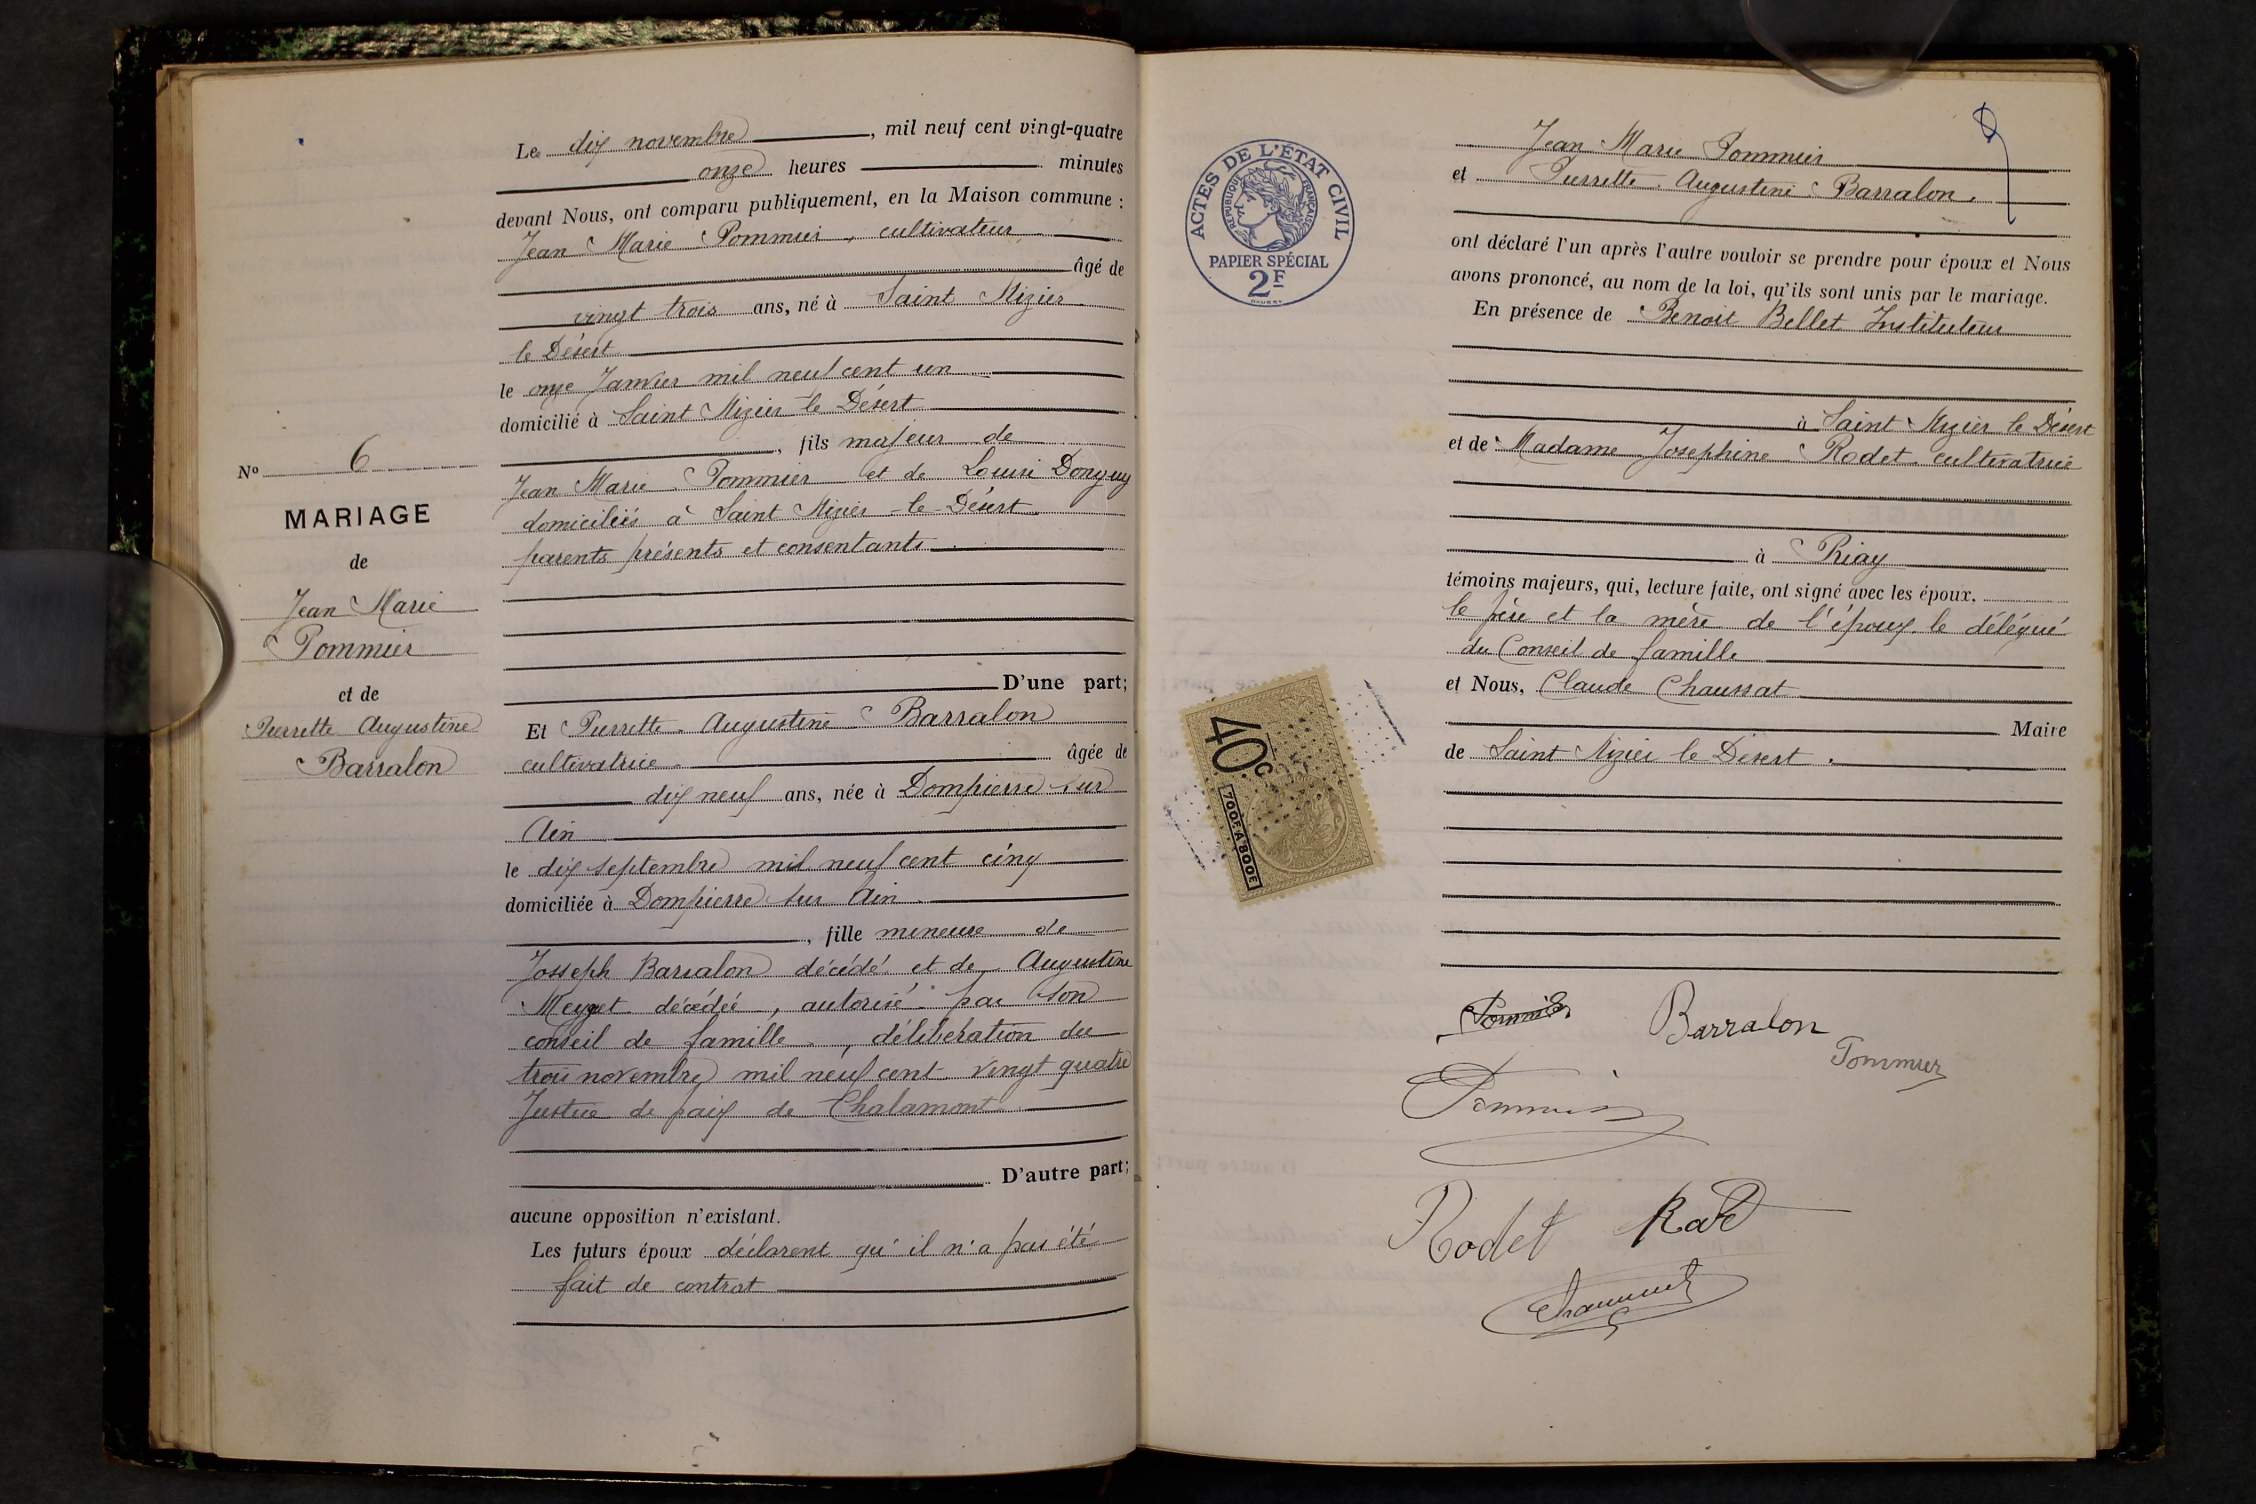 Le dix novembre, mil neuf cent vingt-quatre
onze heures minutes
devant Nous, ont comparu publiquement, en la Maison commune :
Jean Marie Pommier, cultivateur
âgé de
vingt trois ans, né à Saint Nizier
le Désert
le onze Janvier mil neuf cent un
domicilié à Saint Nizier le Désert
, fils majeur de
Jean Marie Pommier et de Louise Donguy
domiciliés à Saint Nizier-le-Désert
parents présents et consentants
D'une part;
Nº 6
MARIAGE
de
Jean Marie
Pommier
et de
Pierrette Augustine
Barralon
Et Pierrette Augustine Barralon
cultivatrice âgée de
dix neuf ans, née à Dompierre sur
Ain
le dix septembre mil neuf cent cinq
domiciliée à Dompierre sur Ain
, fille mineure de
Josseph Barralon décédé et de Augustine
décédée, autorisé par son
conseil de famille, délibération du
trois novembre mil neuf cent vingt quatre
Justice de paix de Chalamont
D'autre part;
aucune opposition n'existant.
Les futurs époux déclarent qu'il n'a pas été
fait de contrat
ACTES DE L'ÉTAT CIVIL
RÉPUBLIQUE FRANÇAISE
PAPIER SPÉCIAL
2F
Jean Marie Pommier
et Pierrette Augustine Barralon.
ont déclaré l'un après l'autre vouloir se prendre pour époux et Nous
avons prononcé, au nom de la loi, qu'ils sont unis par le mariage.
En présence de Benoit Bellet Instituteur
à Saint Nizier le Désert
et de Madame Josephine Rodet cultivatrice
à Priay
témoins majeurs, qui, lecture faite, ont signé avec les époux,
le père et la mère de l'époux, le délégué
du Conseil de famille
et Nous, Claude Chaussat
Maire
de Saint Nizier le Désert.
40c
700F A 800F
Pommier
Barralon
Pommier
Pommier
Rodet
Chaussat